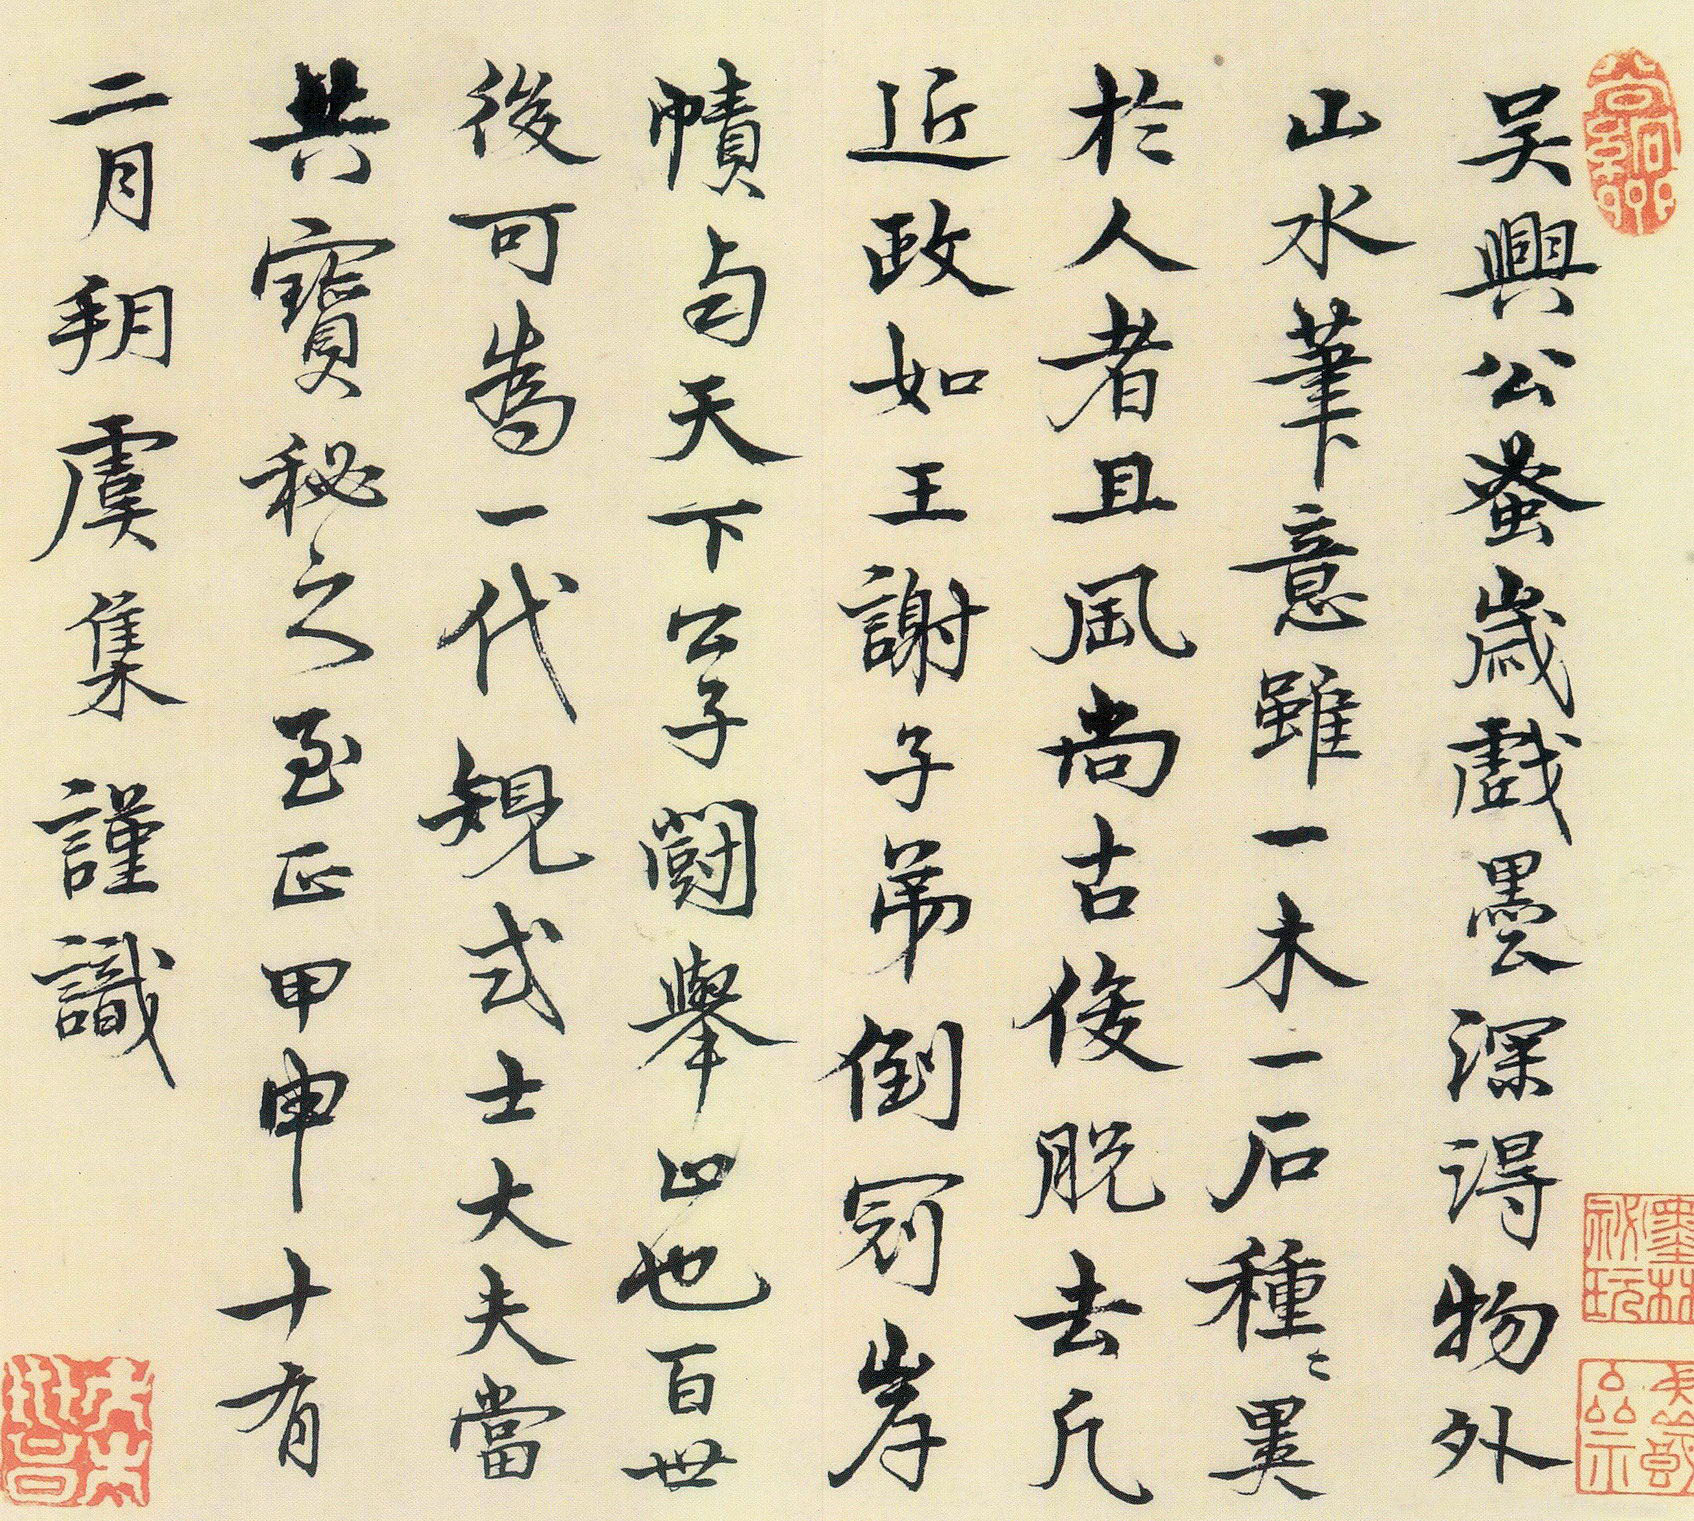 吴興公蚤歳戲墨深得物外
山水筆意雖一木一石種〻異
於人者且風尚古俊脱去凡
近政如王謝子弟倒冠岸
幘与天下公子鬪舉止也百世
後可為一代規式士大夫當
共寳秘之至正甲申十有
二月朔虞集謹識